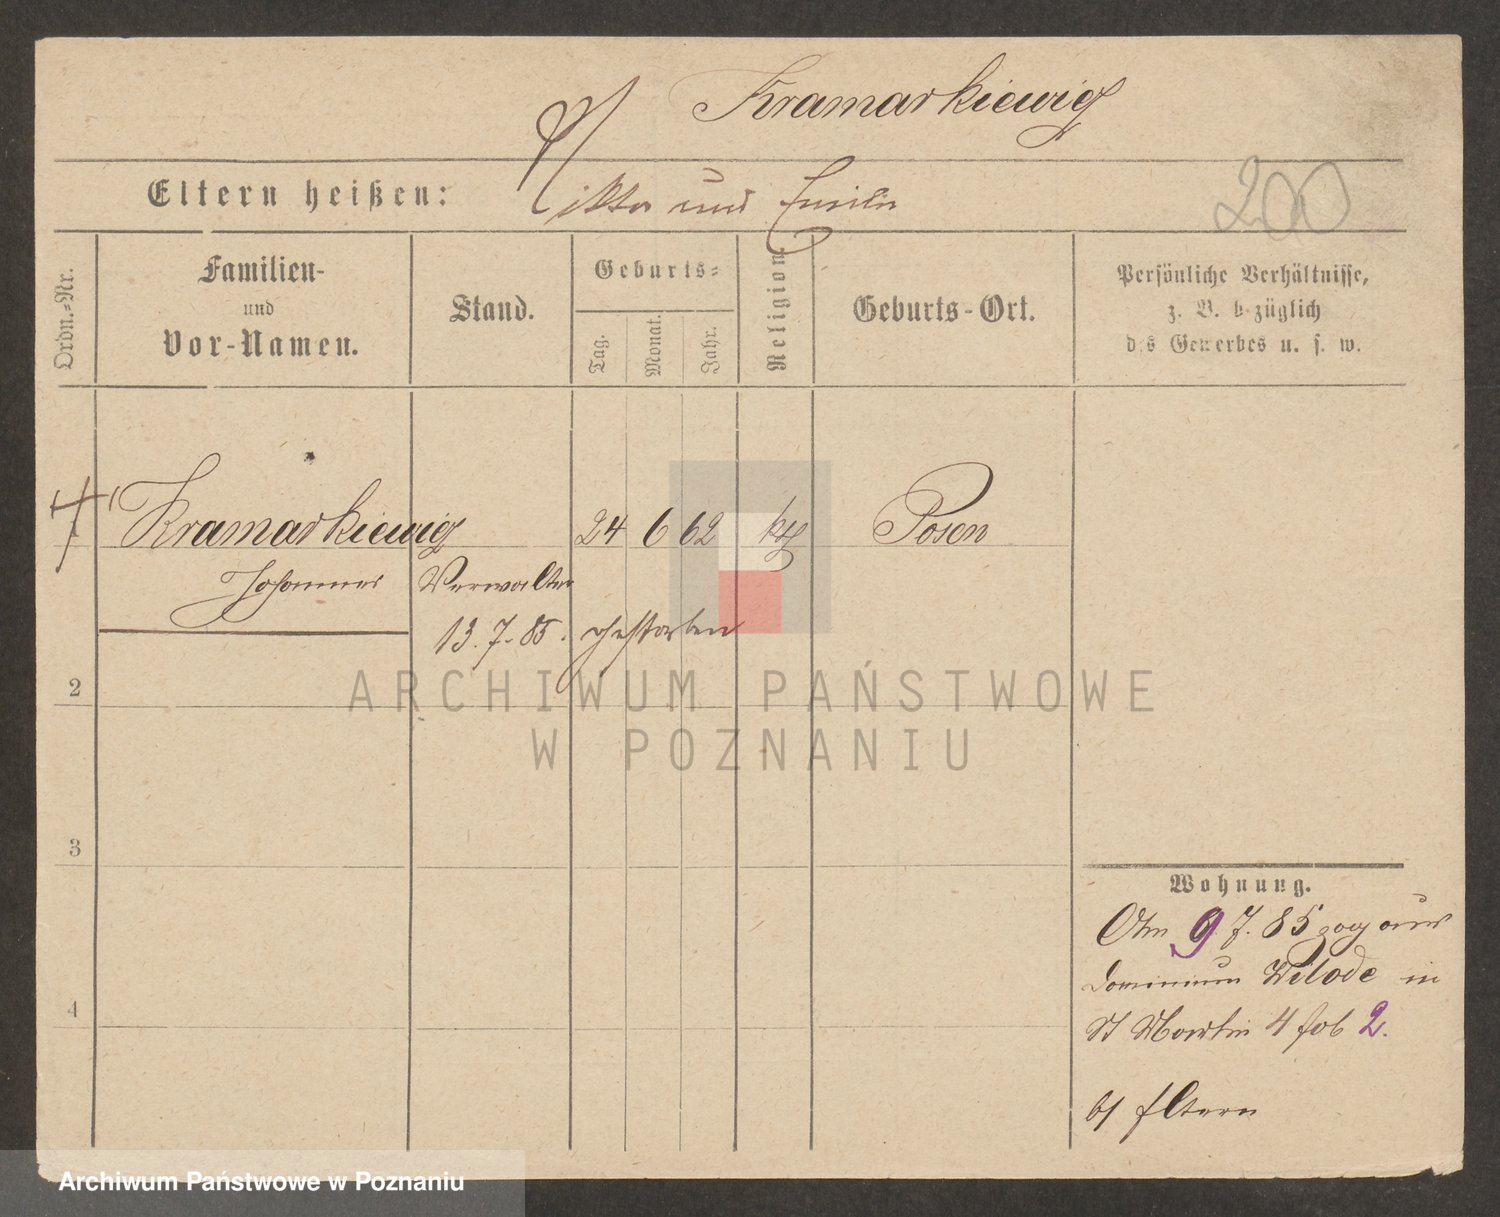 Kramarkiewicz
200
Eltern heißen: Viktor und Emilie
Ordn.-Nr.
Familien-
und
Vor-Namen.
Stand.
Geburts-
Tag.
Monat.
Jahr.
Religion
Geburts-Ort.
Persönliche Verhältnisse,
z. B. bezüglich
des Gewerbes u. s. w.
Kramarkiewicz 24 6 62 kth Posen
Johannes Verwalter
13.7.85. gestorben
2
3
4
Wohnung.
Am 9.7.85 zog aus
Dominium Wilode in
St Martin 4 fob 2.
b/ Eltern
ARCHIWUM PAŃSTWOWE
W POZNANIU
Archiwum Państwowe w Poznaniu